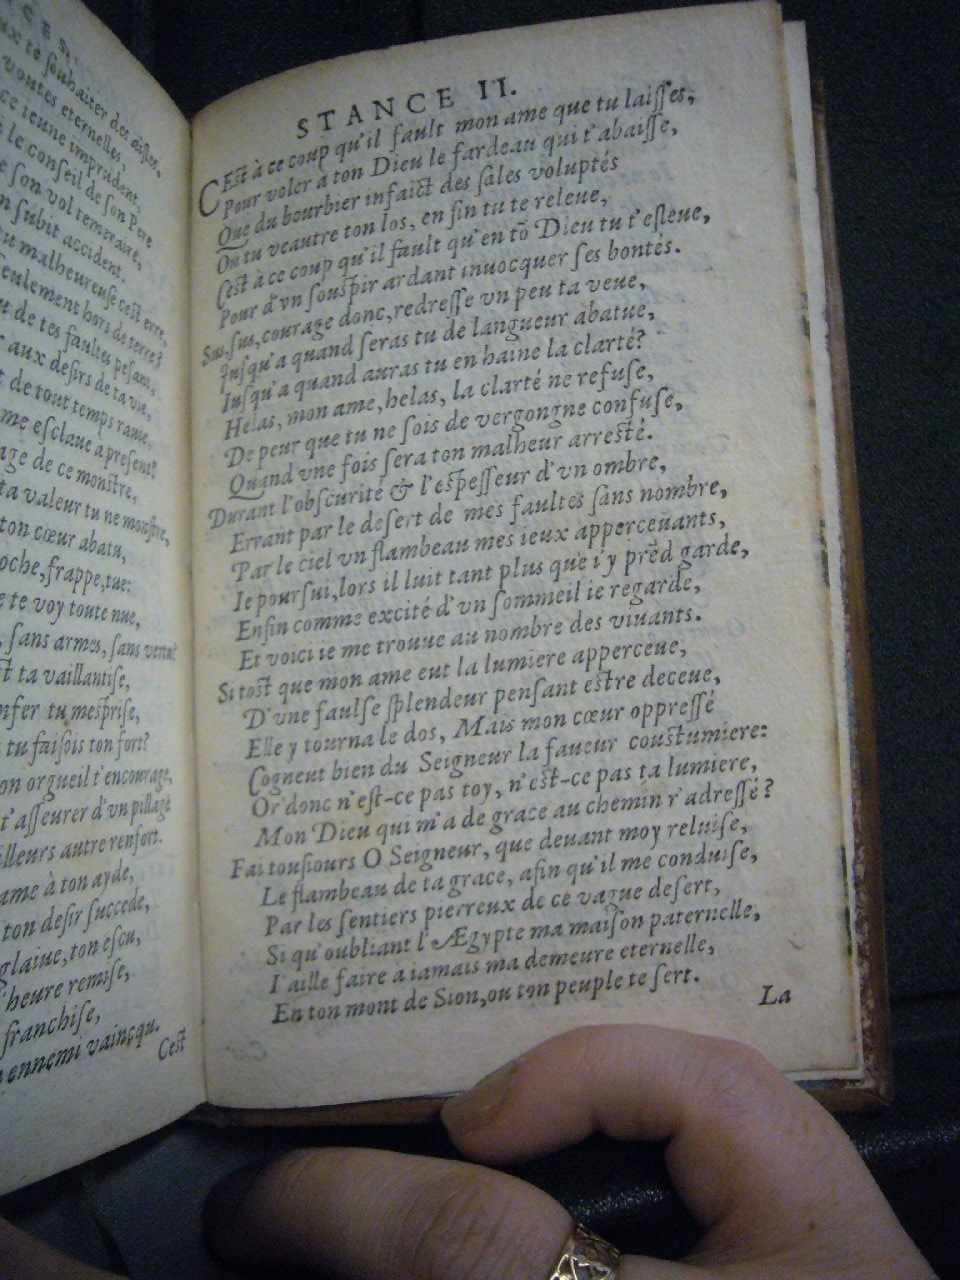 CES.
ux te souhaiter des aisles,
voutes eternelles,
ce ieune imprudent,
le conseil de son Pere
son vol temeraire,
n subit accident.
malheureuse cest erre,
seulement hors de terre?
de tes faultes pesant,
aux desirs de ta vie,
de tout temps rauie,
me esclaue a present?
age de ce monstre,
ta valeur tu ne monstre,
ton cœur abatu,
oche, frappe, tue:
te voy toute nue,
, sans armes, sans vertu?
st ta vaillantise,
nfer tu mesprise,
tu faisois ton fort?
on orgueil t'encourage,
t'asseurer d'vn pillage
illeurs autre renfort.
ame à ton ayde,
ton desir succede,
glaiue, ton escu,
l'heure remise,
franchise,
ennemi vaincqu.
Cest
STANCE II.
CEst à ce coup qu'il fault mon ame que tu laisses,
Pour voler a ton Dieu le fardeau qui t'abaisse,
Que du bourbier infaict des sales voluptés
Ou tu veautre ton los, en fin tu te releue,
Cest à ce coup qu'il fault qu'en tõ Dieu tu t'esleue,
Pour d'vn souspir ardant inuocquer ses bontés.
Sus, sus, courage donc, redresse vn peu ta veue,
Jusqu'a quand seras tu de langueur abatue,
Iusqu'a quand auras tu en haine la clarté?
Helas, mon ame, helas, la clarté ne refuse,
De peur que tu ne sois de vergongne confuse,
Quand vne fois sera ton malheur arresté.
Durant l'obscurité & l'espesseur d'vn ombre,
Errant par le desert de mes faultes sans nombre,
Par le ciel vn flambeau mes ieux apperceuants,
Ie poursui, lors il luit tant plus que i'y prẽd garde,
Enfin comme excité d'vn sommeil ie regarde,
Et voici ie me trouue au nombre des viuants.
Si tost que mon ame eut la lumiere apperceue,
D'vne faulse splendeur pensant estre deceue,
Elle y tourna le dos, Mais mon cœur oppressé
Cogneut bien du Seigneur la faueur coustumiere:
Or donc n'est-ce pas toy, n'est-ce pas ta lumiere,
Mon Dieu qui m'a de grace au chemin r'adressé?
Fai tousiours O Seigneur, que deuant moy reluise,
Le flambeau de ta grace, afin qu'il me conduise,
Par les sentiers pierreux de ce vague desert,
Si qu'oubliant l'Ægypte ma maison paternelle,
I'aille faire a iamais ma demeure eternelle,
En ton mont de Sion, ou ton peuple te sert.
La